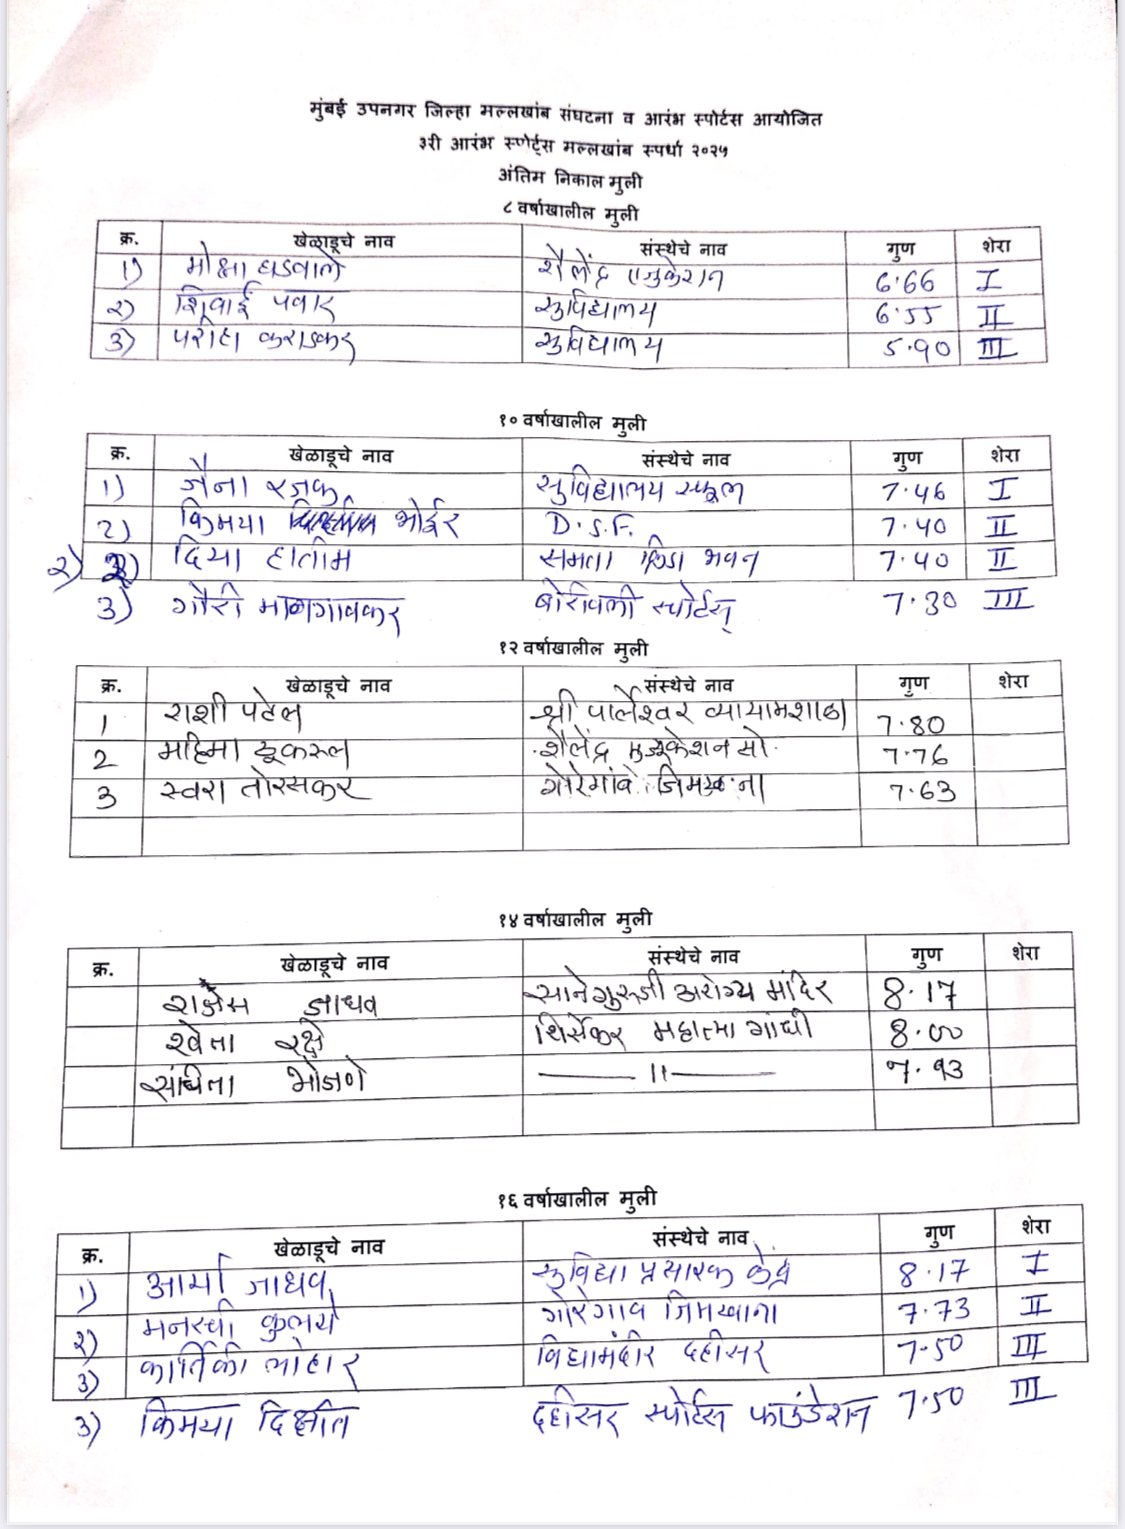 मुंबई उपनगर जिल्हा मल्लखांब संघटना व आरंभ स्पोर्टस आयोजित
३री आरंभ स्पोर्ट्स मल्लखांब स्पर्धा २०२५
अंतिम निकाल मुली
८ वर्षाखालील मुली
क्र. खेळाडूचे नाव संस्थेचे नाव गुण शेरा
१) मोक्षा घडवाले शैलेंद्र एजुकेशन 6.66 I
२) शिवाई पवार सुविद्यालय 6.55 II
3) कराडकर सुविद्यालय 5.90 III
१० वर्षाखालील मुली
क्र. खेळाडूचे नाव संस्थेचे नाव गुण शेरा
1) जैना रजक सुविद्यालय स्कूल 7.46 I
2) किमया भोईर D.S.F. 7.40 II
२) दिया हातीम समता क्रिडा भवन 7.40 II
3) गौरी माळगावकर बोरीवली स्पोर्टस् 7.30 III
१२ वर्षाखालील मुली
क्र. खेळाडूचे नाव संस्थेचे नाव गुण शेरा
1 राशी पटेल श्री पार्लेश्वर व्यायामशाळा 7.80
2 महिमा शैलेंद्र एज्यूकेशन सो. 7.76
3 स्वरा तोरसकर गोरेगांव जिमखाना 7.63
१४ वर्षाखालील मुली
क्र. खेळाडूचे नाव संस्थेचे नाव गुण शेरा
जाधव सानेगुरुजी आरोग्य मंदिर 8.17
श्वेता रक्षे शिर्सेकर महात्मा गांधी 8.00
संचिता भोजणे —— 11 —— 7.93
१६ वर्षाखालील मुली
क्र. खेळाडूचे नाव संस्थेचे नाव गुण शेरा
1) आर्या जाधव सुविद्या प्रसारक केंद्र 8.17 I
२) मनस्वी कुलये गोरेगाव जिमखाना 7.73 II
3) कार्तिकी लोहार विद्यामंदीर दहीसर 7.50 III
3) किमया दिक्षीत दहीसर स्पोर्टस फाउंडेशन 7.50 III